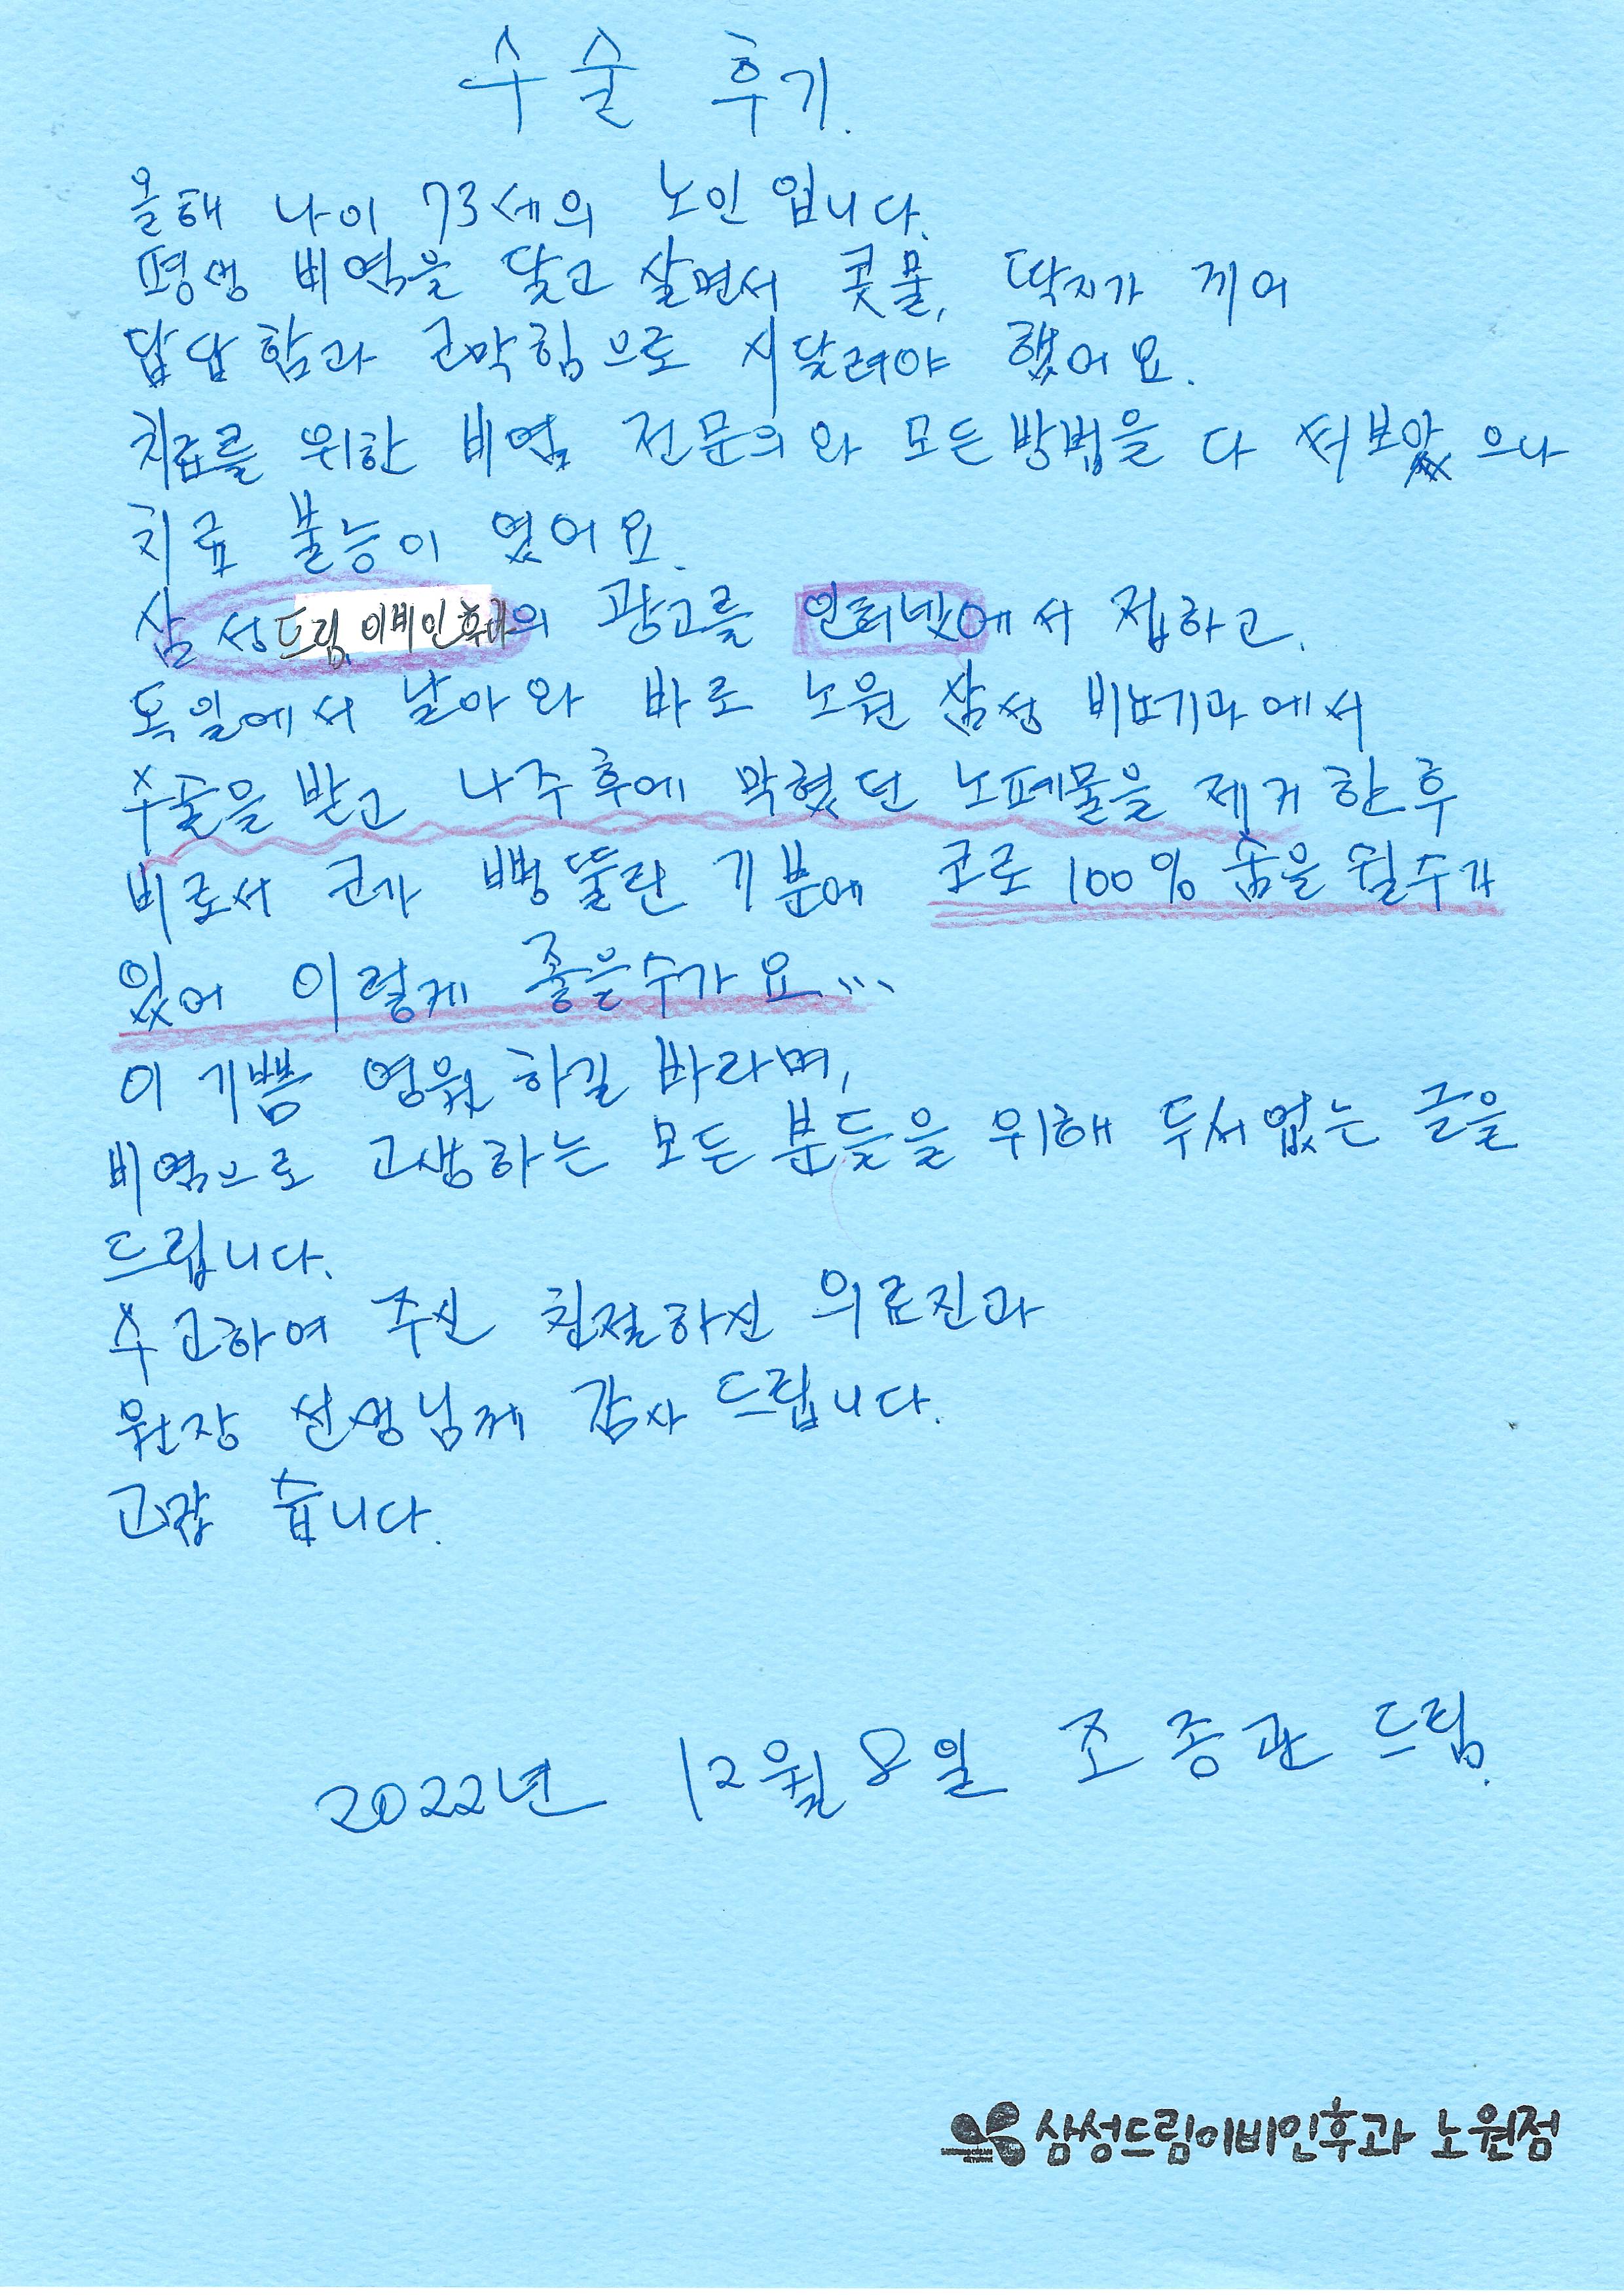 수술 후기.
올해 나이 73세의 노인 입니다.
평생 비염을 달고 살면서 콧물, 딱지가 끼어
답답함과 코막힘으로 시달려야 했어요.
치료를 위한 비염 전문의와 모든방법을 다 써보았으나
치료 불능이 였어요.
삼성드림이비인후과의 광고를 인터넷에서 접하고.
독일에서 날아와 바로 노원 삼성 비뇨기과에서
수술을 받고 나주후에 막혔던 노폐물을 제거 한후
비로서 코가 뻥뚫린 기분에 코로 100% 숨을 쉴수가
있어 이렇게 좋을수가요...
이 기쁨 영원하길 바라며,
비염으로 고생하는 모든 분들을 위해 두서없는 글을
드립니다.
수고하여 주신 친절하신 의료진과
원장 선생님께 감사 드립니다.
고맙 습니다.
2022년 12월 8일 조종관 드림.
삼성드림이비인후과 노원점